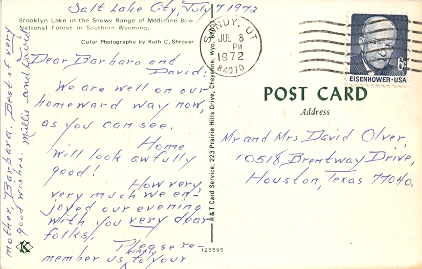 Salt Lake City, July 7 1972
Brooklyn Lake in the Snowy Range of Medicine Bow
National Forest in Southern Wyoming.
Color Photography by Ruth C. Shrover
Dear Barbara and
David:
We are well on our
homeward way now,
as you can see.
Home
will look awfully
good!
How very,
very much we en-
joyed our evening
with you very dear
folks!
Please re-
member us to your
mother, Barbara. Best of very
good wishes. Millie and
A & T Card Service, 223 Prairie Hills Drive, Cheyenne, Wyo.
K
SANDY, UT
JUL 8
PM
1972
84070
EISENHOWER·USA
6¢
POST CARD
Address
Mr and Mrs David Olver,
10518 Brentway Drive,
Houston, Texas 77040.